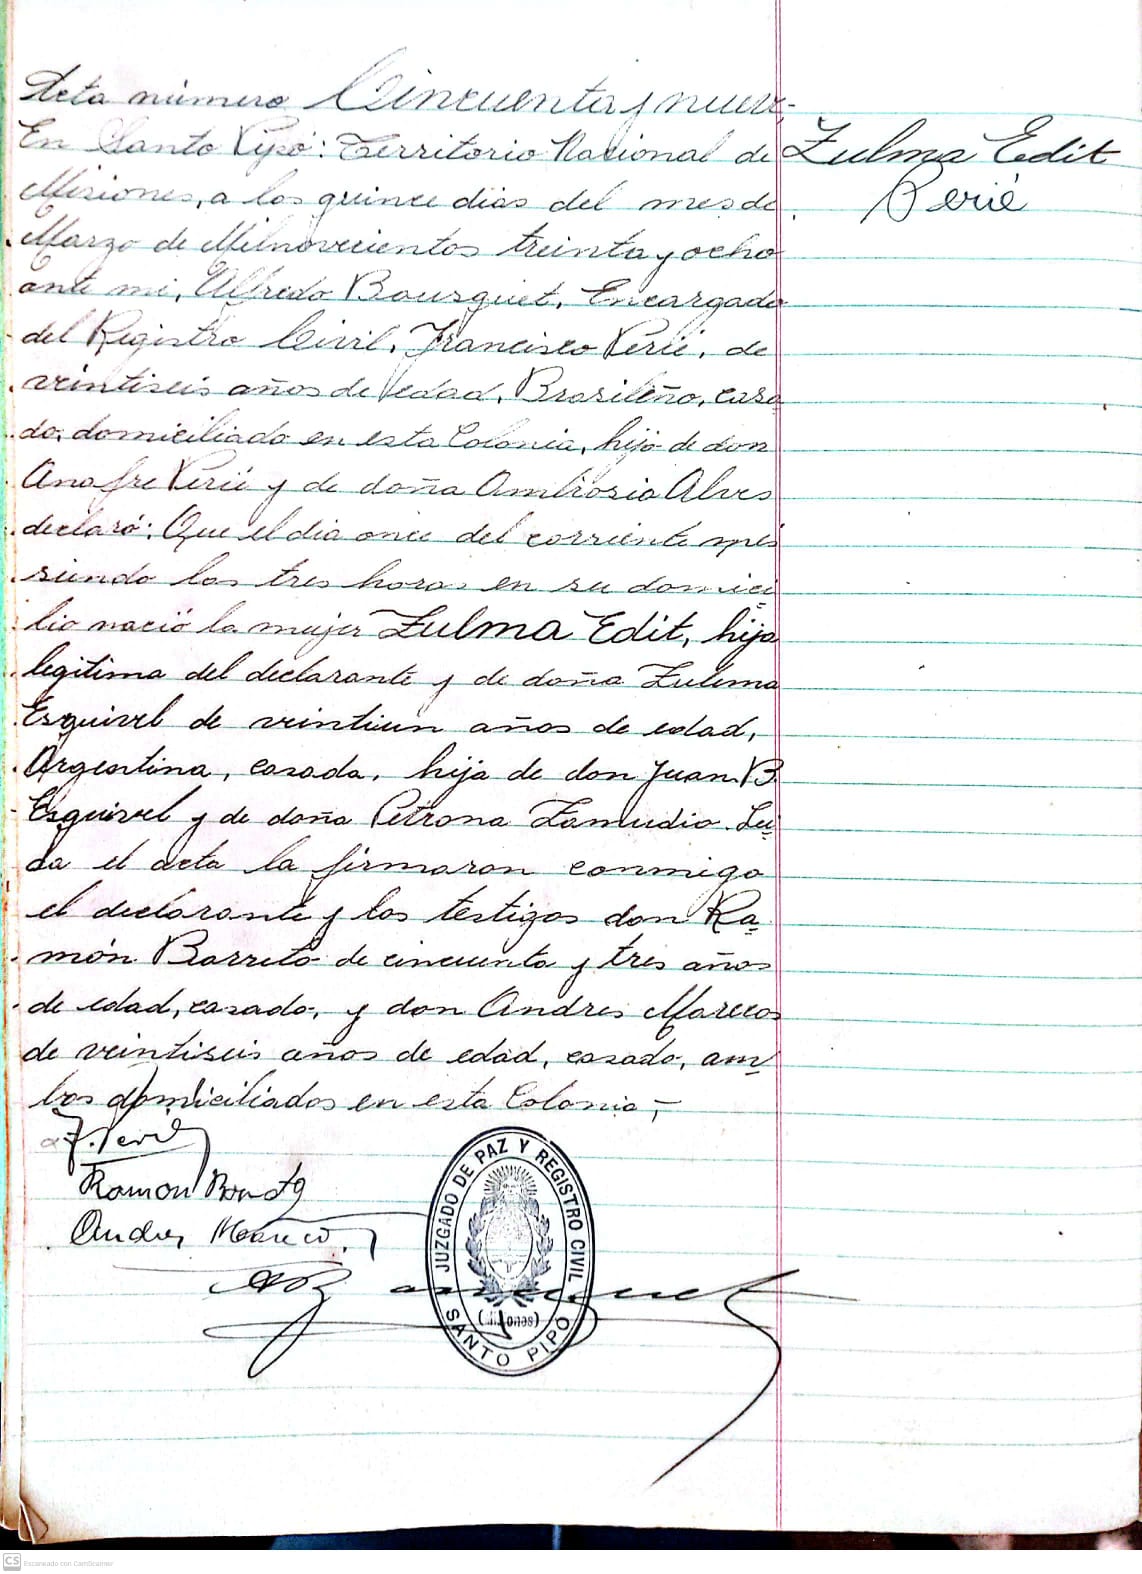 Acta número Cincuenta y nueve-
En Santo Pipó: Territorio Nacional de
Misiones, a los quince dias del mes de
Marzo de Milnovecientos treinta y ocho
ante mi, Alfredo Bousquet, Encargado
del Registro Civil, Francisco Perié, de
veintiseis años de edad, Brasileño, casa
do, domiciliado en esta Colonia, hijo de don
Anofre Perié y de doña Ambrosia Alves
declaró: Que el dia once del corriente mes
siendo las tres horas en su domici
lio nació la mujer Zulma Edit, hija
legitima del declarante y de doña Zulema
Esquivel de veintiun años de edad,
Argentina, casada, hija de don Juan B.
Esquivel y de doña Petrona Zamudio. Leí
da el acta la firmaron conmigo
el declarante y los testigos don Ra
món Barreto de cincuenta y tres años
de edad, casado, y don Andres Marecos
de veintiseis años de edad, casado, am
bos domiciliados en esta Colonia,-
Zulma Edit
Perié
F. Perié
Ramon
Andres
JUZGADO DE PAZ Y REGISTRO CIVIL
(Misiones)
SANTO PIPÓ
CS Escaneado con CamScanner